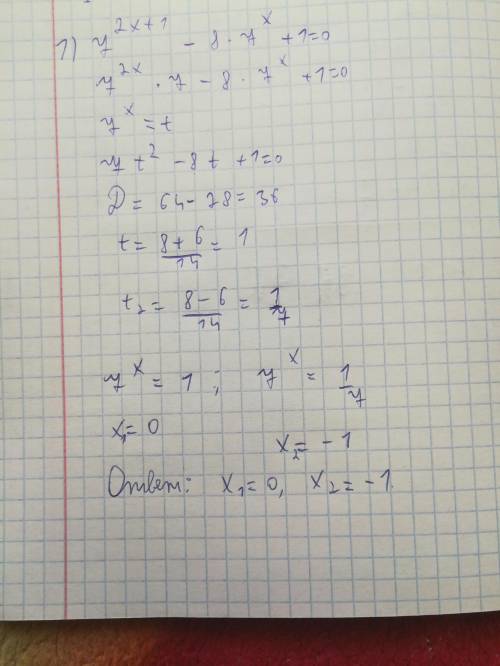 1) 7^{2x+1} - 8 · 7^x + 1 = 0
7^{2x} · 7 - 8 · 7^x + 1 = 0
7^x = t
7t^2 - 8t + 1 = 0
D = 64 - 28 = 36
t = \frac{8+6}{14} = 1
t_2 = \frac{8-6}{14} = \frac{1}{7}
7^x = 1 ; 7^x = \frac{1}{7}
x_1 = 0
x_2 = -1
Ответ: x_1 = 0, x_2 = -1.